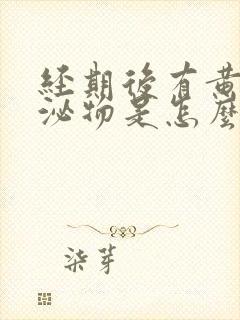 經期後有黃
泌物是怎麼
柒芽